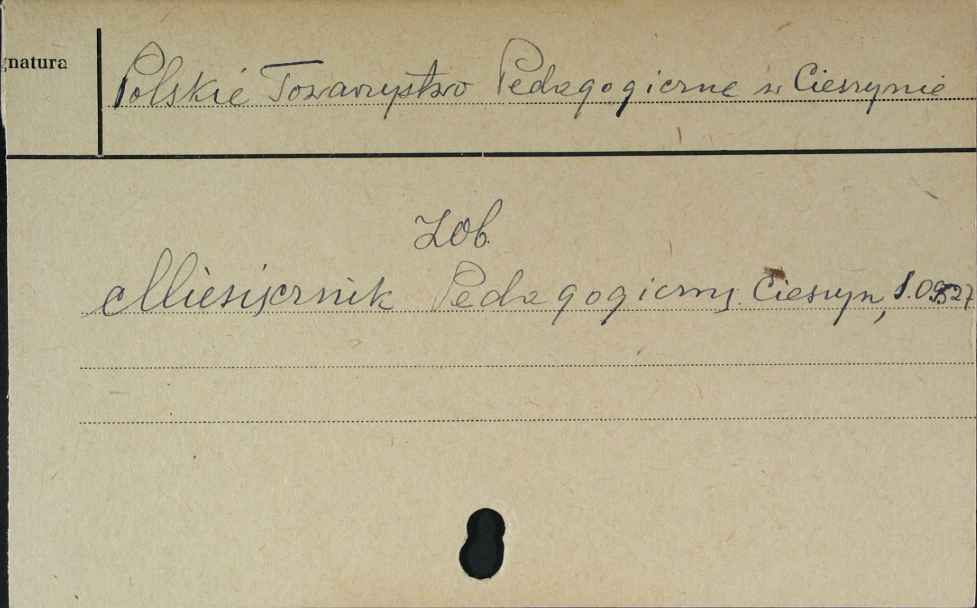 gnatura
Polskie Towarzystwo Pedagogiczne w Cieszynie
Zob.
Miesięcznik Pedagogiczny. Cieszyn,